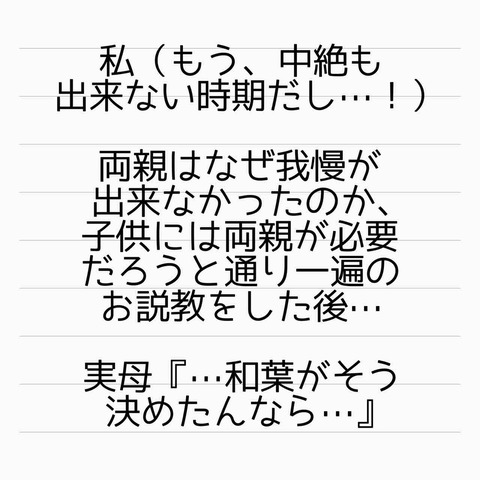 私（もう、中絶も
出来ない時期だし…！）
両親はなぜ我慢が
出来なかったのか、
子供には両親が必要
だろうと通り一遍の
お説教をした後…
実母『…和葉がそう
決めたんなら…』